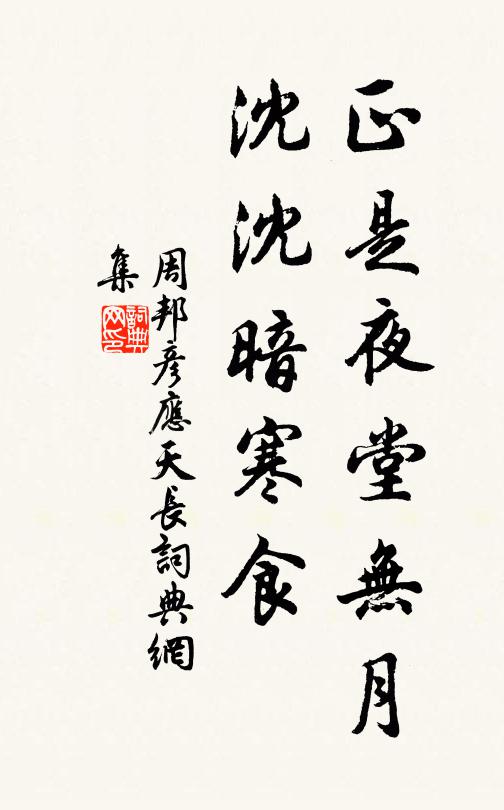 正是夜堂無月
沈沈暗寒食
周邦彥應天長詞典網
集
詞典
网印